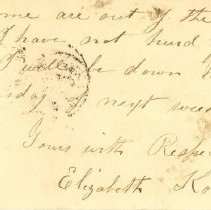 ome are out of the
I have not heard
I will be down
sday of next wee
Yours with Respe
Elizabeth Ko